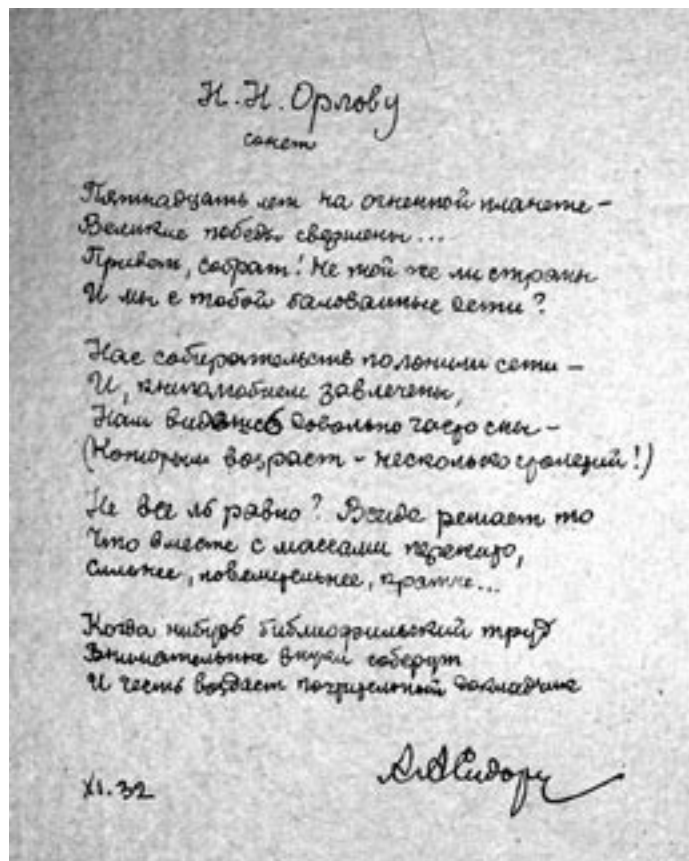 Н. Н. Орлову
сонет
Пятнадцать лет на огненной планете –
Великие победы свершены...
Привет, собрат! Не той же ли страны
И мы с тобой балованные дети?
Нас собирательств полонили сети –
И, книголюбием завлечены,
Нам видались довольно часто сны –
(Которым возраст – несколько столетий!)
Не все ль равно? Всегда решает то
Что вместе с массами пережито,
Сильнее, повелительнее, кратче...
Когда нибудь библиофильский труд
Внимательные внуки соберут
И честь воздаст почтительный докладчик
XI.32
А. А. Сидоров